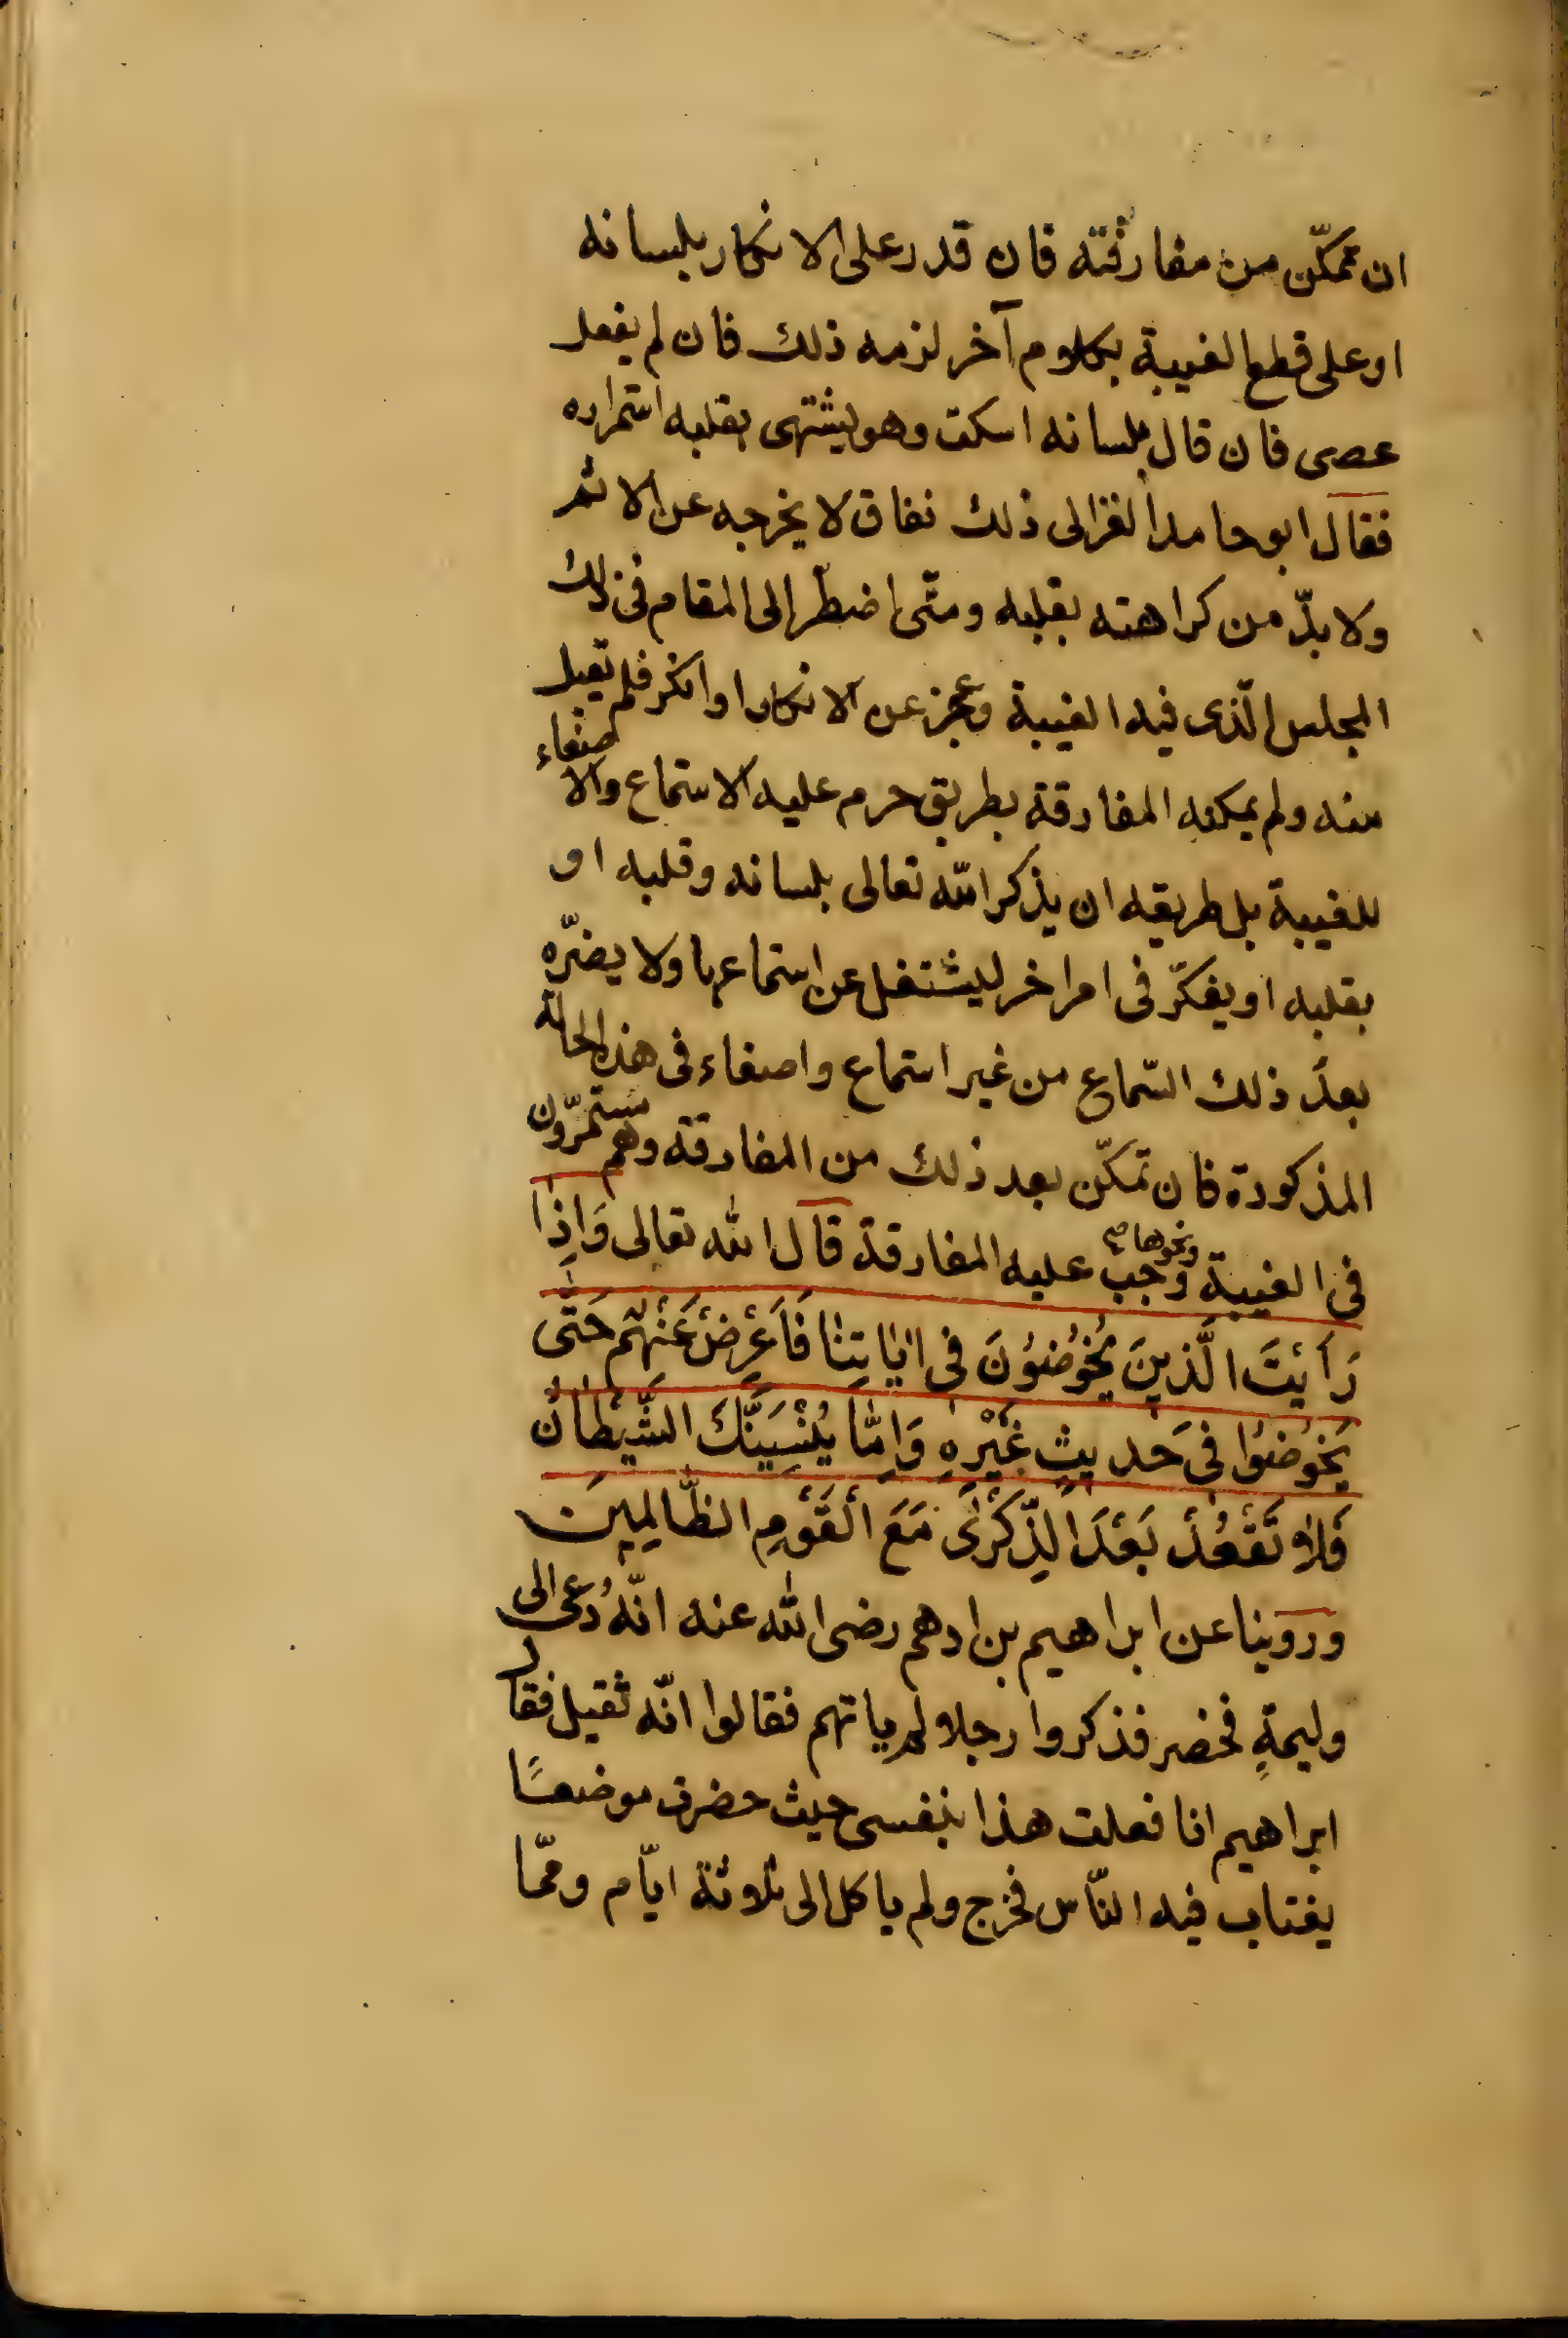 ان تمكّن من مفارقته فان قدر على الانكار بلسانه
او على قطع الغيبة بكلام آخر لزمه ذلك فان لم يفعل
عصى فان قال بلسانه اسكت وهو يشتهى بقلبه استمراره
فقال ابو حامد الغزالى ذلك نفاق لا يخرجه عن الاثم
ولا بدّ من كراهته بقلبه ومتى اضطرّ الى المقام فى ذلك
المجلس الّذى فيه الغيبة وعجز عن الانكار او انكر فلم يقبل
منه ولم يمكنه المفارقة بطريق حرم عليه الاستماع والاصغاء
للغيبة بل طريقه ان يذكر الله تعالى بلسانه وقلبه او
بقلبه او يفكّر فى امر اخر ليشتغل عن استماعها ولا يضرّه
بعد ذلك السّماع من غير استماع واصغاء فى هذه الحالة
المذكورة فان تمكّن بعد ذلك من المفارقة وهم مستمرّون
فى الغيبة ونحوها صح وجب عليه المفارقة قال الله تعالى وَاِذَا
رَاَيْتَ الَّذينَ يَخُوضُونَ فى اٰيَاتِنَا فَاَعْرِضْ عَنْهُمْ حَتّٰى
يَخُوضُوا فى حَديثٍ غَيْرِهِ وَاِمَّا يُنْسِيَنَّكَ الشَّيْطَانُ
فَلَا تَقْعُدْ بَعْدَ الذِّكْرٰى مَعَ الْقَوْمِ الظَّالِمِينَ
وروينا عن ابراهيم بن ادهم رضى الله عنه انّه دُعى الى
وليمةٍ فحضر فذكروا رجلا لم ياتهم فقالوا انّه ثقيل فقال
ابراهيم انا فعلت هذا بنفسى حيث حضرت موضعًا
يغتاب فيه النّاس فخرج ولم ياكل الى ثلاثة ايّام وممّا